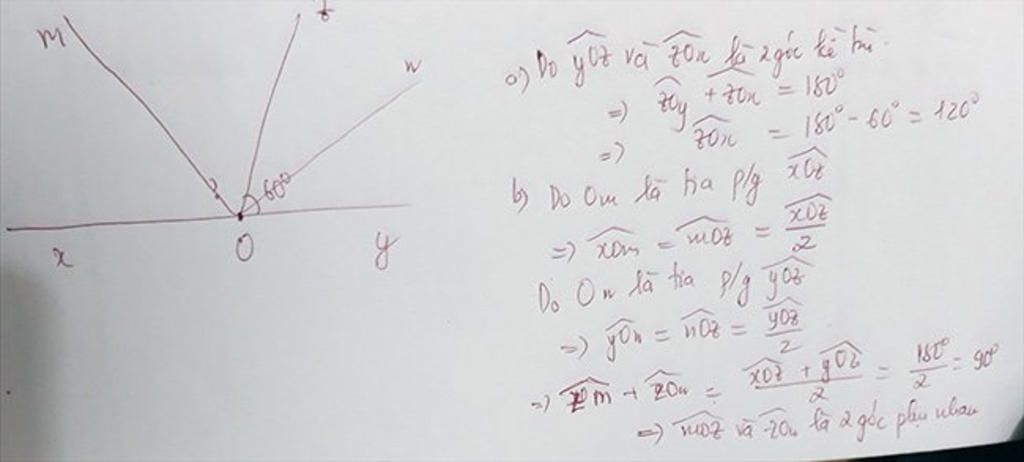 m
z
n
60°
x
O
y
a) Do \widehat{yOz} và \widehat{zOx} là 2 góc kề bù.
=) \widehat{zOy} + \widehat{zOx} = 180°
=) \widehat{zOx} = 180° - 60° = 120°
b) Do Om là tia p/g \widehat{xOz}
=) \widehat{xOm} = \widehat{mOz} = \frac{\widehat{xOz}}{2}
Do On là tia p/g \widehat{yOz}
=) \widehat{yOn} = \widehat{nOz} = \frac{\widehat{yOz}}{2}
=) \widehat{zOm} + \widehat{zOn} = \frac{\widehat{xOz} + \widehat{yOz}}{2} = \frac{180°}{2} = 90°
=) \widehat{mOz} và \widehat{zOn} là 2 góc phụ nhau